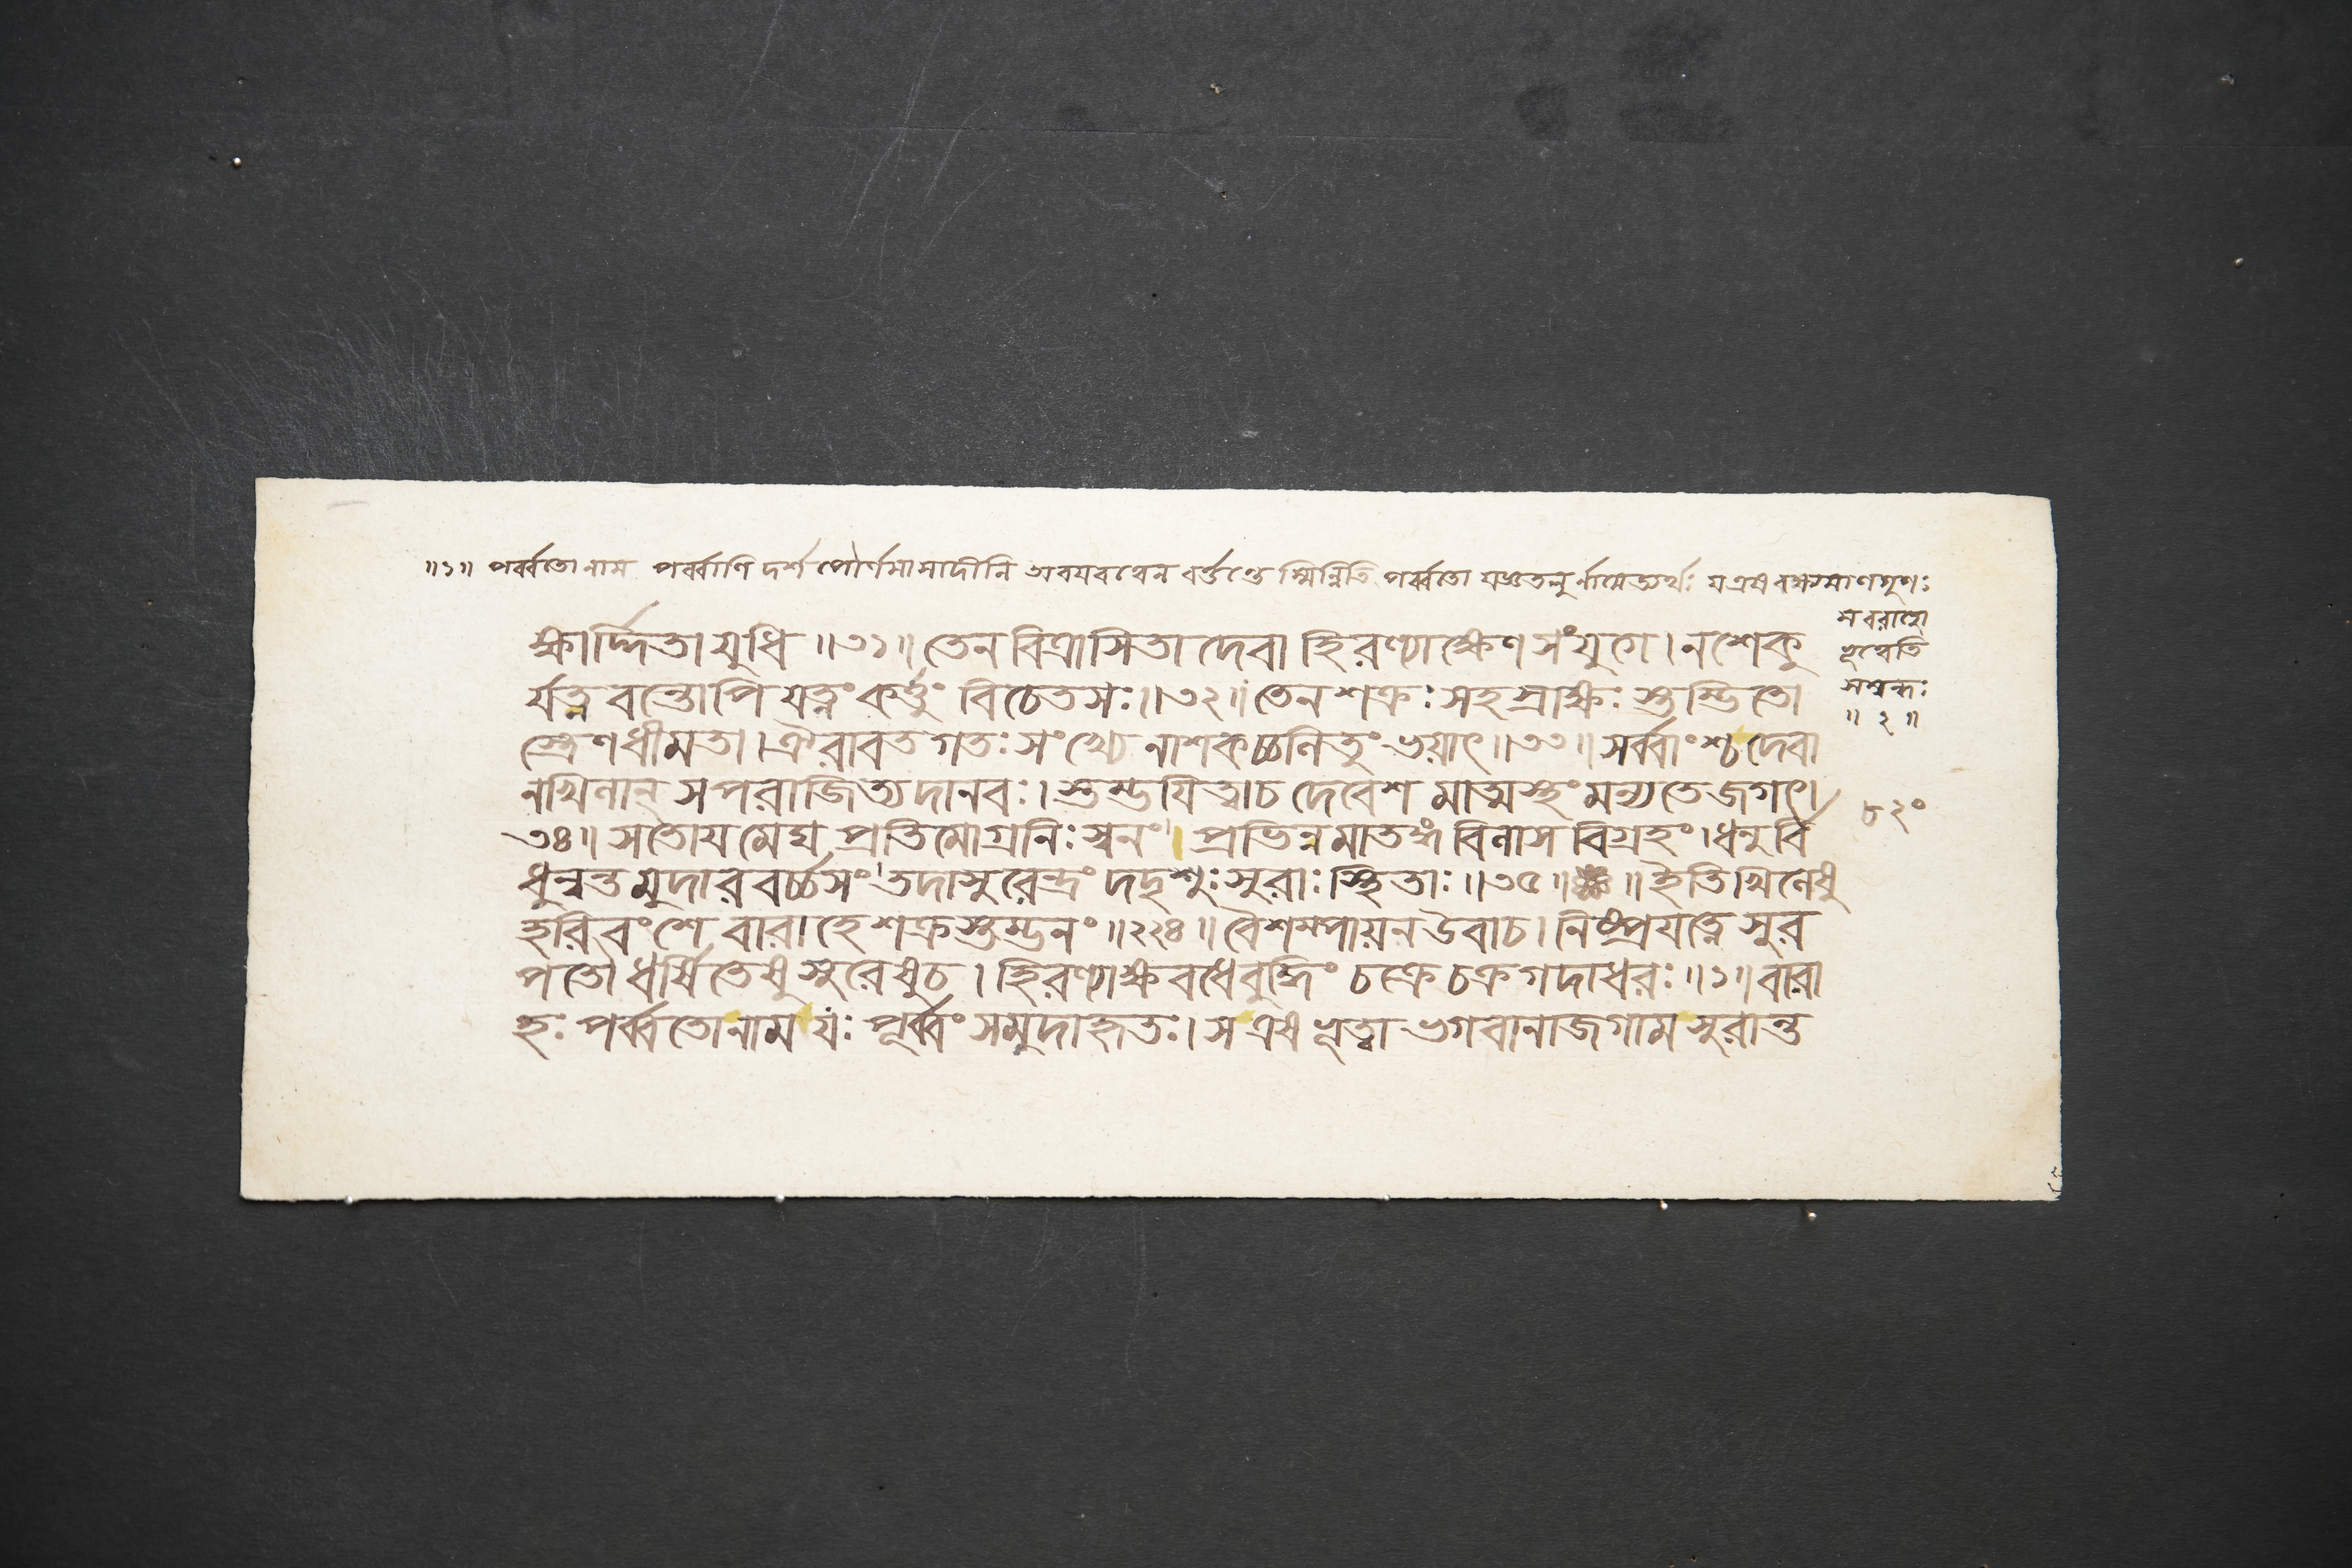 ॥১॥ পর্ব্বতো নাম পর্ব্বাণি দর্শপৌর্ণমাসাদীনি অবয়বত্বেন বর্ত্তন্তেস্মিন্নিতি পর্ব্বতো যজ্ঞতনুর্নামেত্যর্থঃ য এষ বক্ষ্যমাণগুণঃ
স বরাহো
ভূত্বেতি
সম্বন্ধঃ
॥ ২ ॥
ক্ষার্দ্দিতা যুধি ॥৩১॥ তেন বিত্রাসিতা দেবা হিরণ্যাক্ষেণ সংযুগে। ন শেকু
র্যত্নবন্তোপি যত্নং কর্ত্তুং বিচেতসঃ॥৩২॥ তেন শক্রঃ সহস্রাক্ষঃ স্তম্ভিতো
স্ত্রেণ ধীমতা। ঐরাবতগতঃ সংখ্যে নাশকচ্চলিতুং ভয়াৎ॥৩৩॥ সর্ব্বাংশ্চ দেবা
নখিলান্ স পরাজিত্য দানবঃ। স্তম্ভয়িত্বা চ দেবেশমাত্মস্থং মন্যতে জগৎ।
৩৪॥ সতোয়মেঘপ্রতিমোগ্রনিঃস্বনং। প্রভিন্নমাতঙ্গবিলাসবিগ্রহং। ধনুর্বি
ধুন্বন্তমুদারবর্চ্চসং তদাসুরেন্দ্রং দদৃশুঃ সুরাঃ স্থিতাঃ॥৩৫॥ ॥ ইতি খিলেষু
হরিবংশে বারাহে শক্রস্তম্ভনং॥২২৪॥ বৈশম্পায়ন উবাচ। নিষ্প্রযত্নে সুর
পতৌ ধর্ষিতেষু সুরেষু চ। হিরণ্যাক্ষবধে বুদ্ধিং চক্রে চক্রগদাধরঃ॥১॥ বারা
হঃ পর্ব্বতো নাম যঃ পূর্ব্বং সমুদাহৃতঃ। স এষ ভূত্বা ভগবানাজগাম সুরান্ত
৮২০